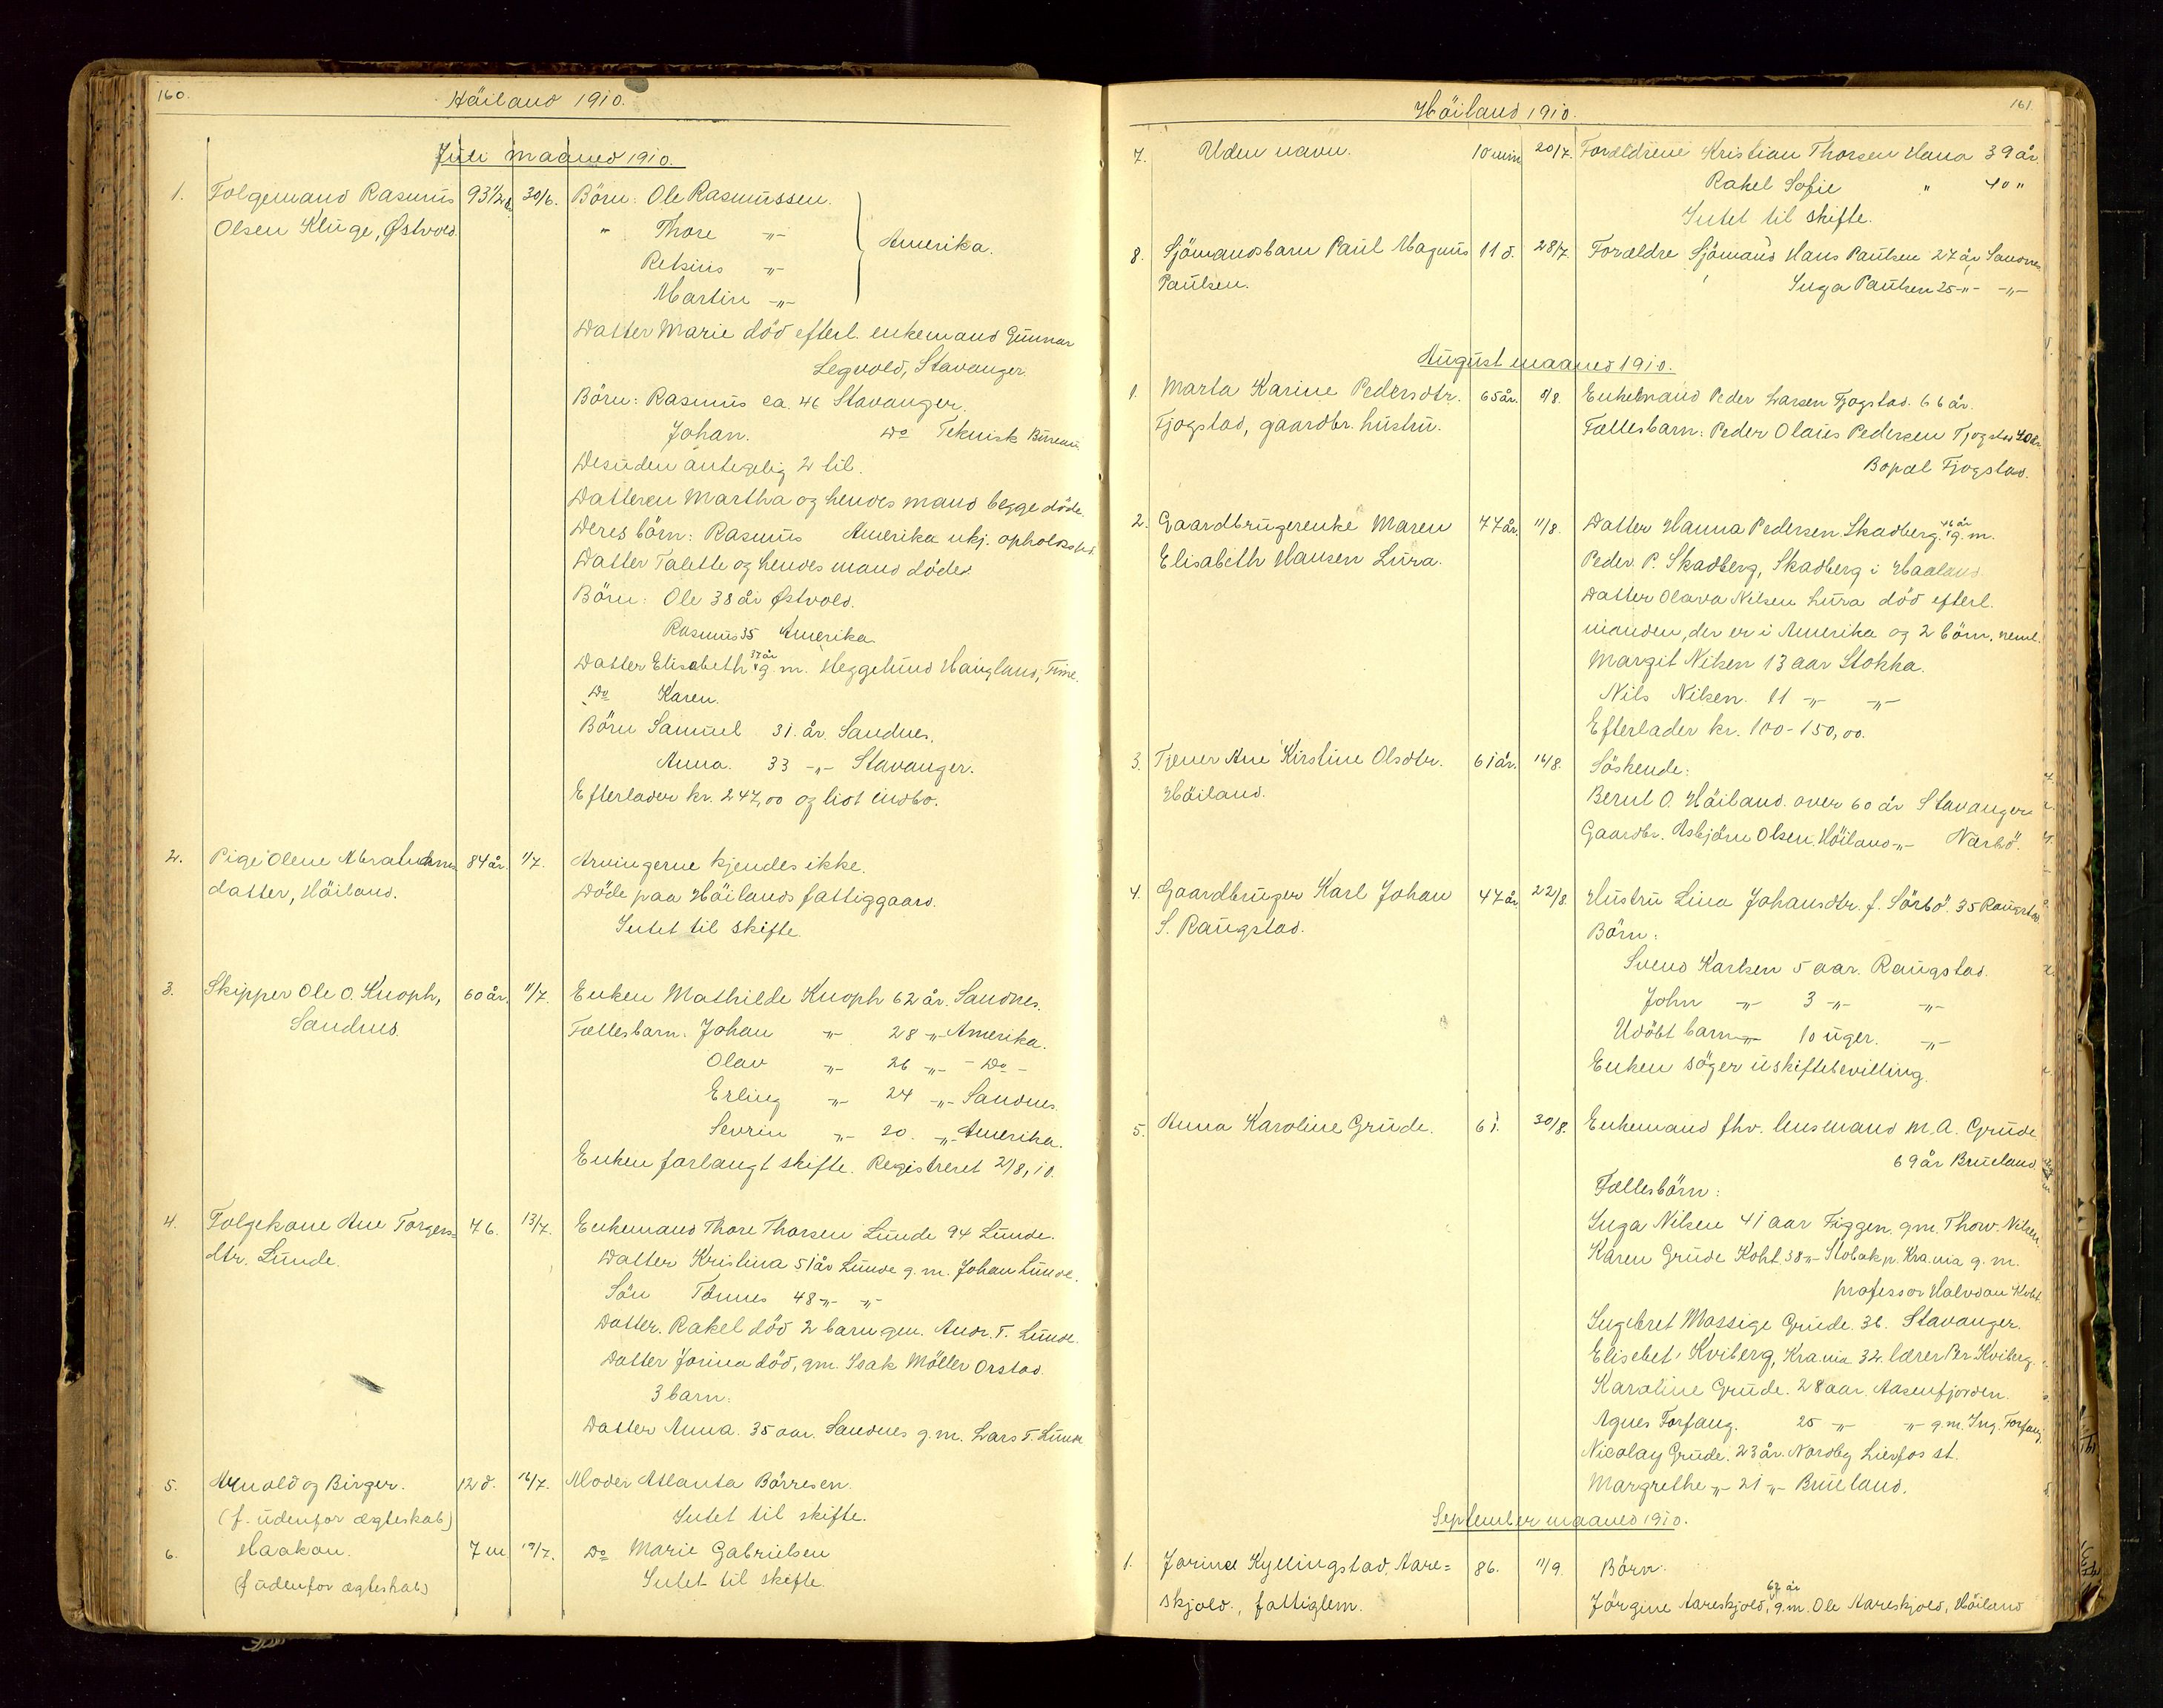 160.
Häiland 1910.
Juli maaned 1910.
1. Folgemand Rasmus 93 1/2 å 30/6. Börn: Ole Rasmussen.
Olsen Kluge, Østvold. " Thore -"-
Retsius -"- Amerika.
Martin -"-
Datter Marie död efterl. enkemand Gunnar
Legvold, Stavanger.
Börn: Rasmus ca. 46 Stavanger.
Johan. Do Teknisk Bureau
Desuden antagelig 2 til.
Datteren Martha og hendes mand begge döde.
Deres börn: Rasmus Amerika ukj. opholdsst.
Datter Talette og hendes mand döde.
Börn: Ole 38 år Østvold.
Rasmus 35 Amerika
Datter Elisabeth 37 år g. m. Heggelund Haugland, Time.
Do Karen.
Börn Samuel 31 år. Sandnes.
Anna. 33 -"- Stavanger.
Efterlader kr. 247,00 og lidt indbo.
2. Pige Olene Abrahams 84 år. 1/7. Arvingerne kjendes ikke.
datter, Häiland. Döde paa Häilands fattiggaard.
Intet til skifte.
3. Skipper Ole O. Knoph, 60 år. 11/7. Enken Mathilde Knoph 62 år. Sandnes.
Sandnes. Fællesbarn. Johan -"- 28 -"- Amerika.
Olav -"- 26 -"- - Do -
Erling -"- 24 -"- Sandnes.
Sevrin -"- 20. -"- Amerika.
Enken forlangt skifte. Registreret 2/8, 10.
4. Folgekone Ane Torgers= 76. 13/7. Enkemand Thore Thorsen Lunde 94 Lunde.
dtr. Lunde. Datter Kristina 51 år Lunde g. m. Johan Lunde.
Sön Tönnes 48 -"- -"-
Datter. Rakel död 2 barn gm. Andr. T. Lunde.
Datter Jorina död, gm. Isak Möller Orstad.
3 barn.
Datter Anna. 35 aar. Sandnes g. m. Lars T. Lunde
5. Arnold og Birger. 12 d. 16/7. Moder Atlanta Börresen.
(f. udenfor ægteskab) Intet til skifte.
6. Haakon. 7 m 19/7. Do Marie Gabrielsen
(f udenfor ægteskab) Intet til skifte.
161.
Häiland 1910.
7. Uden navn. 10 min 20/7. Forældrene Kristian Thorsen Hana 39 år.
Rakel Sofie " 40 "
Intet til skifte.
8. Sjömandsbarn Paul Magnus 11 d. 28/7. Forældre Sjömand Hans Paulsen 27 år Sandnes
Paulsen. Inga Paulsen 25 -"- -"-
August maaned 1910.
1. Marta Karine Pedersdtr. 65 år. 8/8. Enkemand Peder Larsen Fjogstad. 66 år.
Fjogstad, gaardbr. hustru. Fællesbarn: Peder Olaus Pedersen Fjogstad 40 år
Bopæl Fjogstad.
2. Gaardbrugerenke Maren 77 år. 11/8. Datter Hanna Pedersen Skadberg. 46 år g. m.
Elisabeth Hansen Lura. Peder P. Skadberg, Skadberg i Haaland
Datter Olava Nilsen Lura död efterl.
manden, der er i Amerika og 2 börn, neml.
Margit Nilsen 13 aar Stokka.
Nils Nilsen. 11 -"- -"-
Efterlader kr. 100-150,00.
3. Tjener Ane Kirstine Olsdtr. 61 år. 16/8. Söskende:
Häiland. Bernt O. Häiland. over 60 år Stavanger
Gaardbr. Asbjörn Olsen Höiland -"- Nærbö.
4. Gaardbruger Karl Johan 47 år. 22/8. Hustru Lina Johansdtr. f. Sörbö. 35 Raugstad
S. Raugstad. Börn:
Svend Karlsen 5 aar. Raugstad.
John -"- 3 -"- -"-
Udöbt barn -"- 10 uger. -"-
Enken söger uskiftebevilling.
5. Anna Karoline Grude. 61. 30/8. Enkemand fhv. lensmand M. A. Grude
69 år Brueland.
Fællesbörn:
Inga Nilsen 41 aar Figgen. gm. Thorv. Nilsen.
Karen Grude Koht. 38 -"- Stabak p. Kra.nia g. m.
professor Halvdan Koht.
Ingebret Mossige Grude. 36. Stavanger.
Elisebet Kviberg, Kra.nia 32. lærer Per Kviberg.
Karoline Grude. 28 aar. Aasenfjorden.
Agnes Forfang. 25 -"- -"- g. m. Ing. Forfang.
Nicolay Grude. 23 år. Nordby Lierfos st.
Margrethe -"- 21 -"- Brueland.
September maaned 1910.
1. Jorine Kyllingstad, Aare= 86. 11/9. Börn:
skjold., fattiglem. Jörgine Aareskjold, 67 år g. m. Ole Aareskjold, Häiland